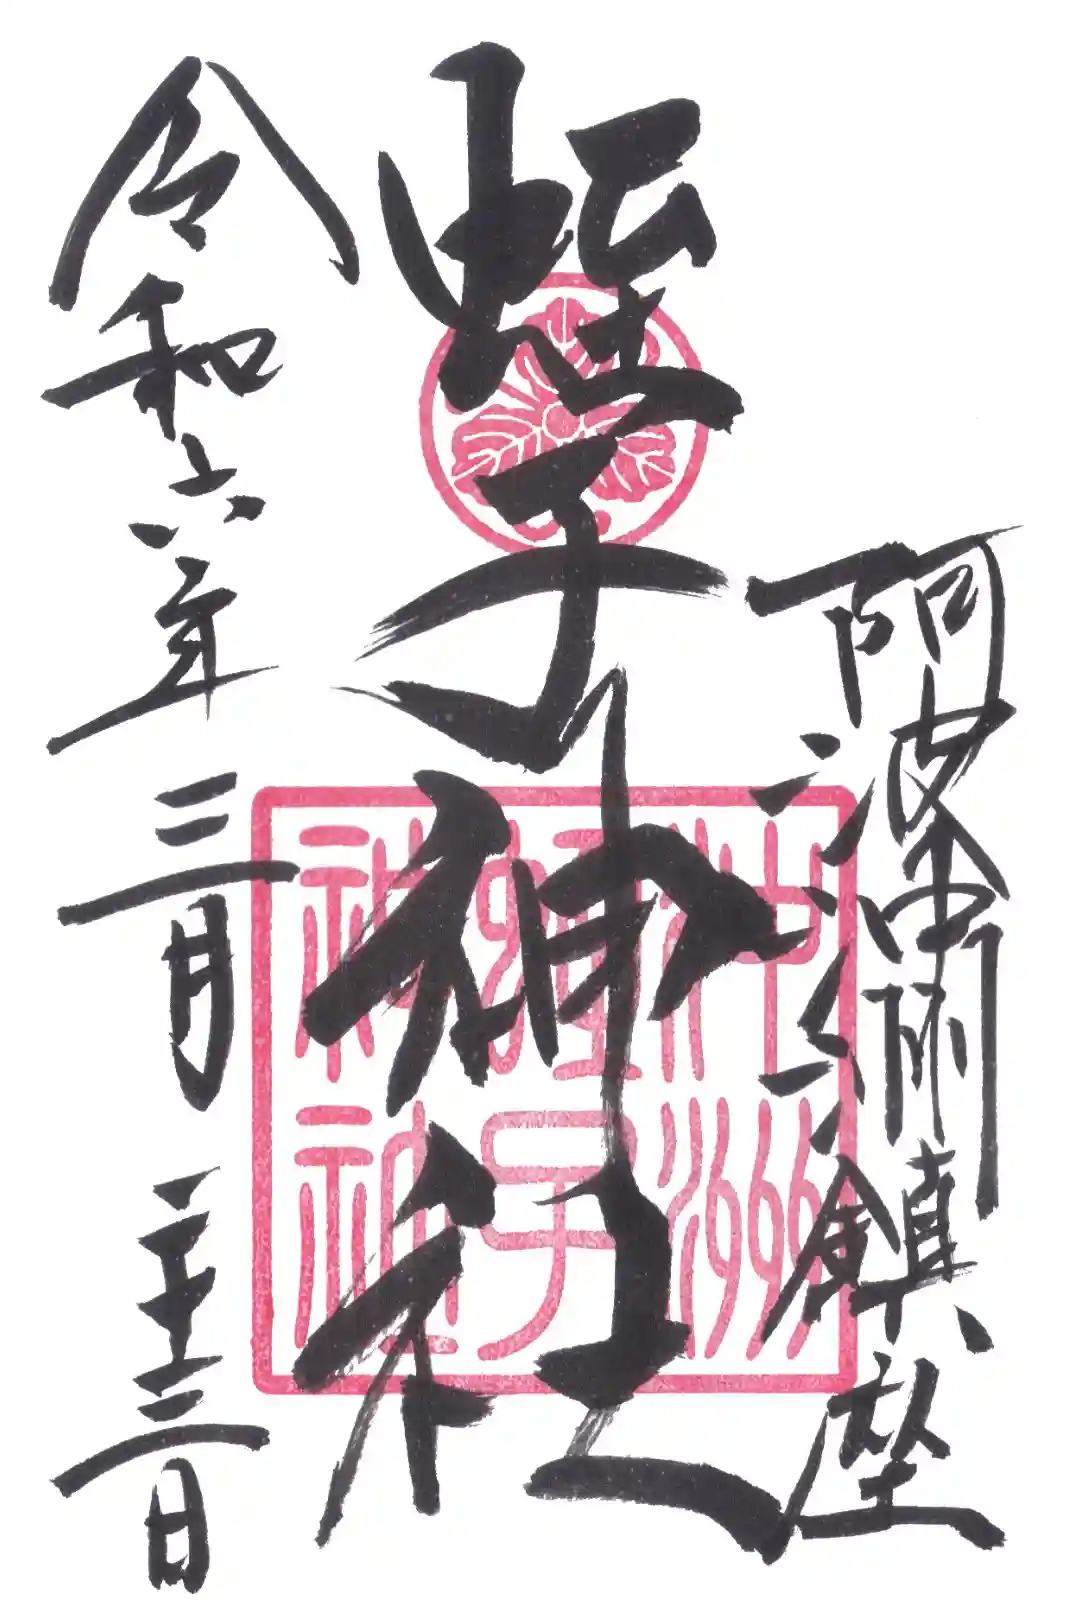 阿波沖洲鎮座
蛭子神社
令和六年三月二十三日
沖洲
蛭子
神社